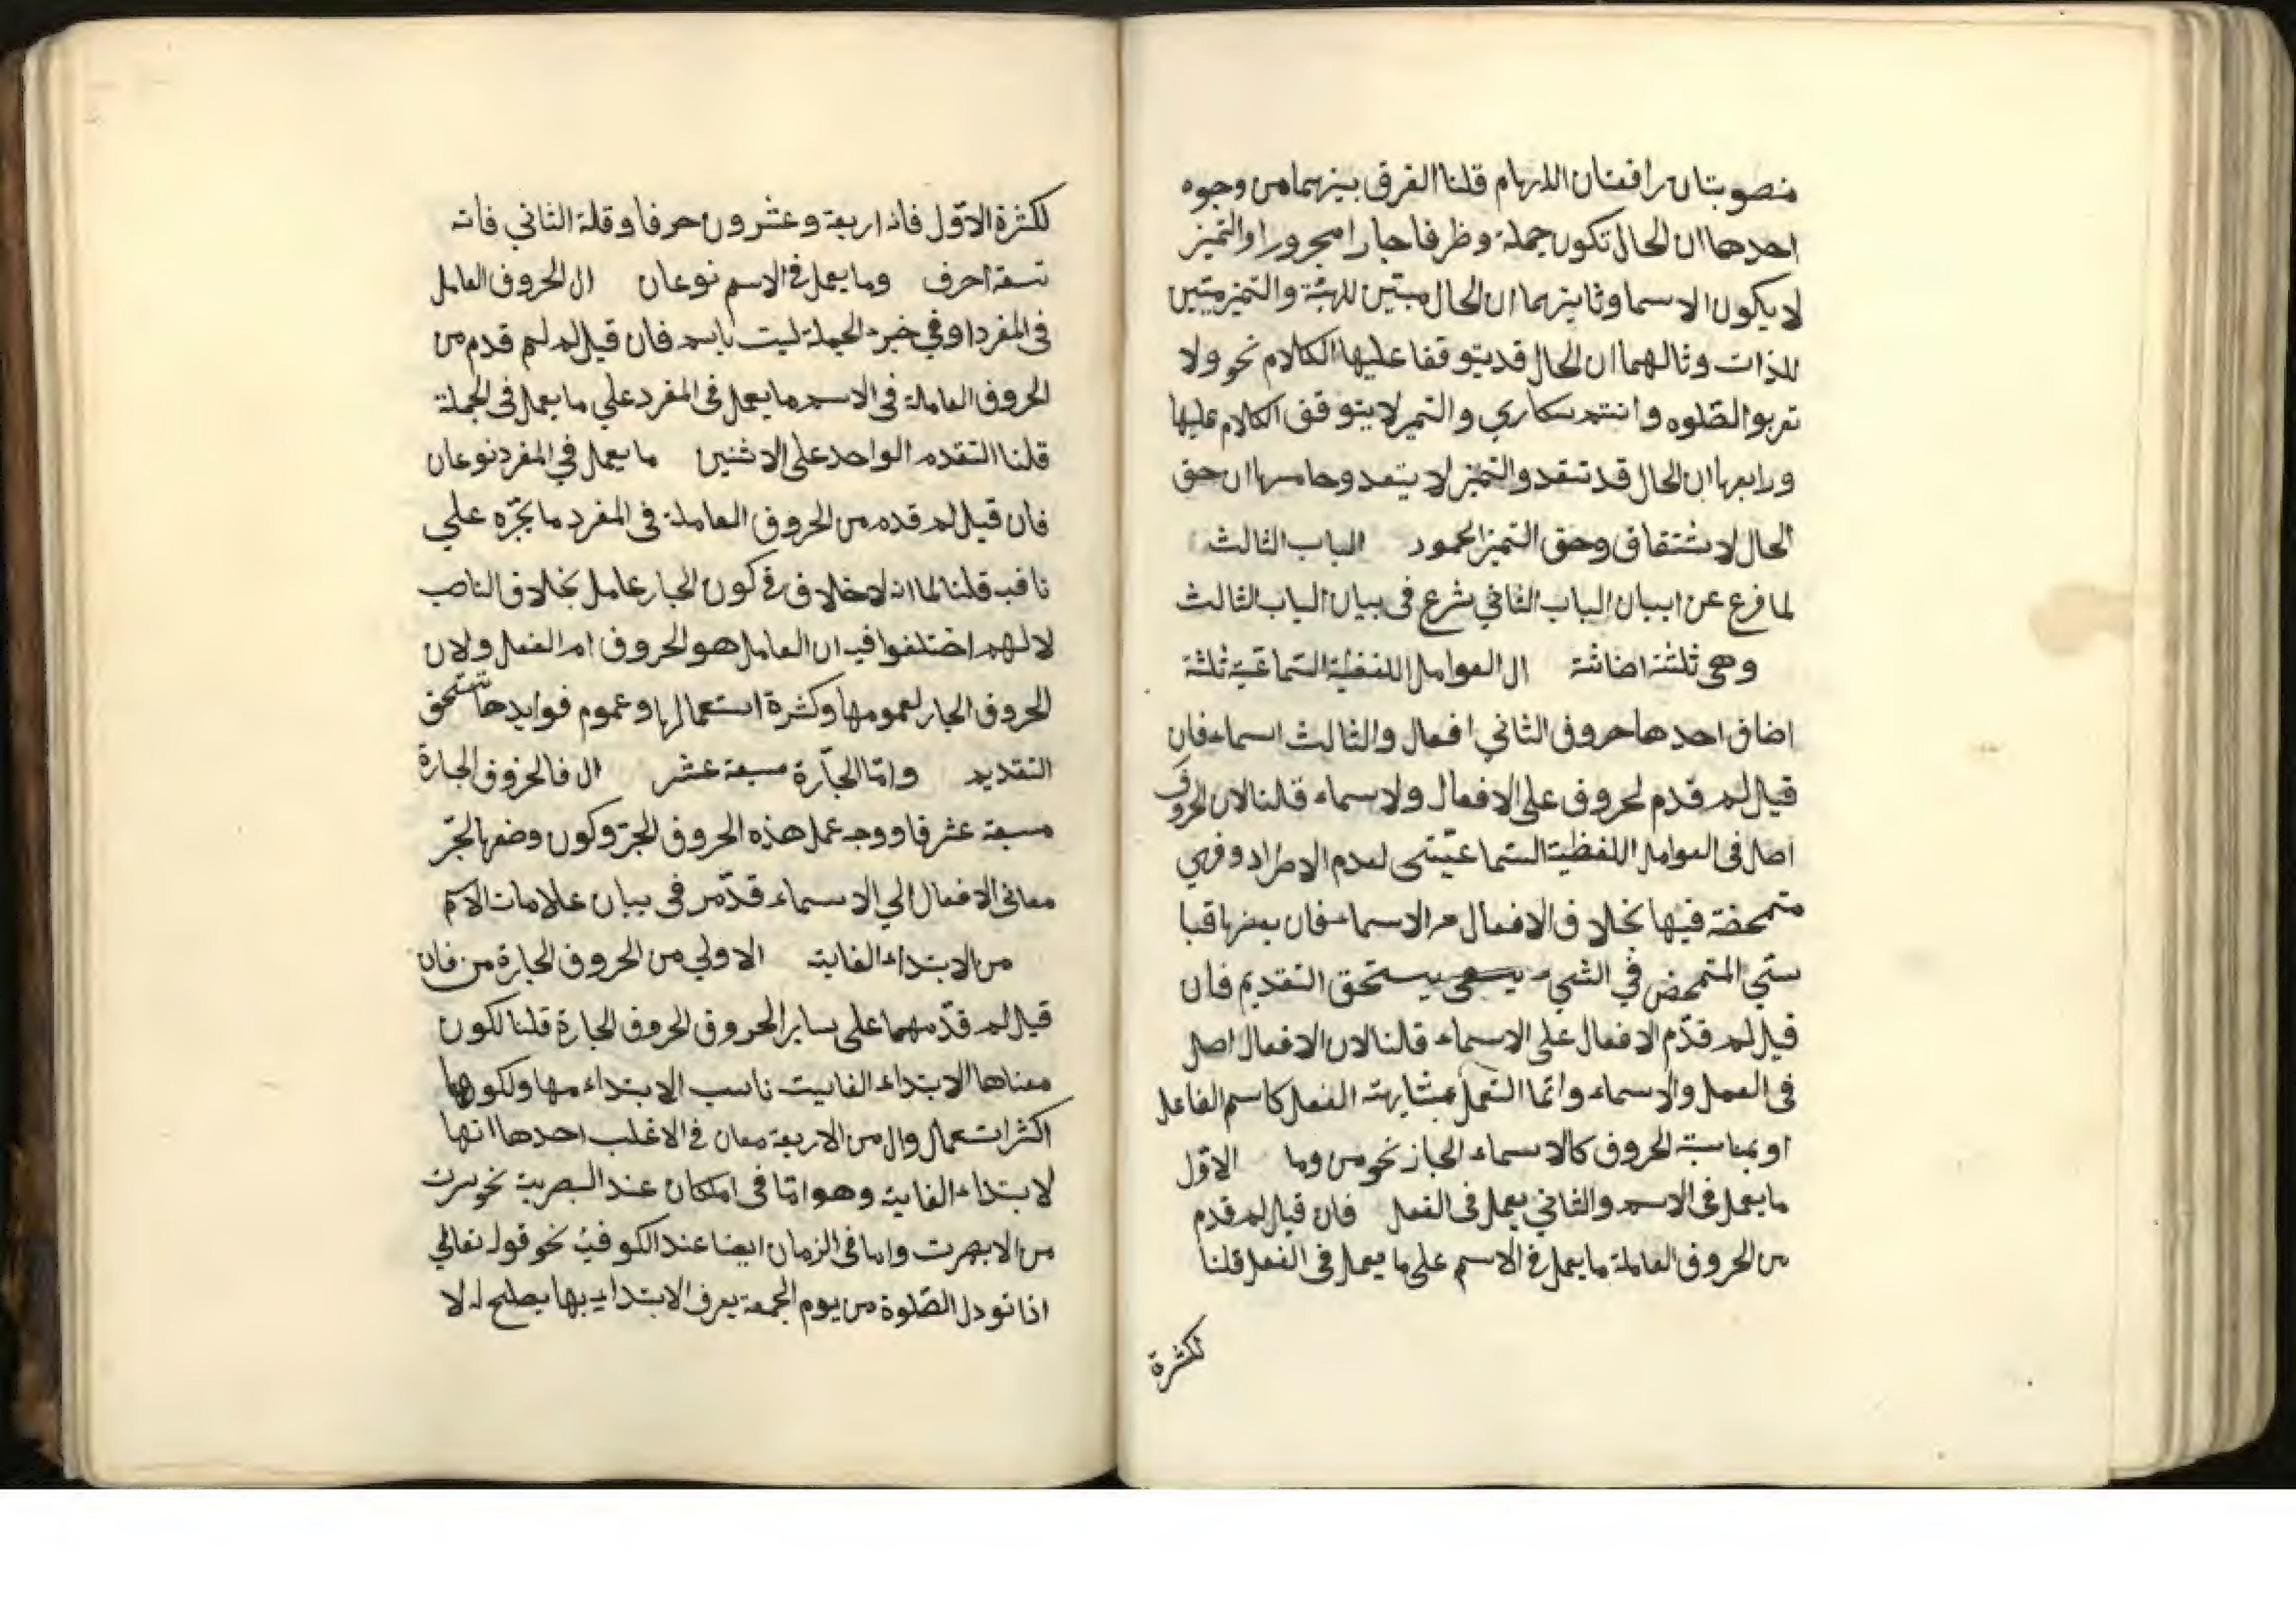 منصوبتان رافعتان اللابهام قلنا الفرق بينهما من وجوه
احدهما ان الحال تكون جملة وظرفا جارا مجرورا والتميز
لا يكون الا سما وثانيهما ان الحال مبين للهيئة والتميز مبين
للذات وثالهما ان الحال قد يتوقفا عليها الكلام نحو ولا
تقربو الصلوه وانتم سكاري والتميز لا يتوقف الكلام عليها
ورابعها ان الحال قد تتعد والتميز لا يتعد وخامسها ان حق
الحال لا شتقاق وحق التميز الجمود الباب الثالث
لما فرع عن ابيان الباب الثاني شرع فى بيان الباب الثالث
وهى ثلثة اضافة ال العوامل اللفظية السماعية ثلثة
اضاف احدها حروف الثاني افعال والثالث اسماء فان
قيل لم قدم لحروف على الافعال ولاسماء قلنا لان الحروف
اصل فى العوامل اللفظية السماعيتى لعدم الاطراد وفهي
متمحضة فيها بخلاف الافعال الاسماء فان بعضها قيا
ستي المتمحض في الشيء يستحق التقديم فان
قيل لم قدّم الافعال على الاسماء قلنا لان الافعال اصل
فى العمل والاسماء وانما التعمل بمشابهته الفعل كاسم الفاعل
او بمناسبة الحروف كالاسماء الجاز نحو من وما الاوّل
ما يعمل فى الاسم والثاني يعمل فى الفعل فان قيل لم قدم
من الحروف العاملة ما يعمل في الاسم على ما يعمل فى الفعل قلنا
لكثرة
لكثرة الاوّل فانه اربعة وعشرون حرفا وقلة الثاني فانه
تسعة احرف وما يعمل في الاسم نوعان ال الحروف العامل
فى المفرد او في خبر الجملة ليت باسم فان قيل لم لم قدم من
الحروف العاملة فى الاسم ما يعمل فى المفرد علي ما يعمل فى الجملة
قلنا التقدم الواحد على الاثنين ما يعمل في المفرد نوعان
فان قيل لم قدم من الحروف العاملة فى المفرد ما يجرّه علي
ناقب قلنا لما انه لا خلاف في كون الجار عامل بخلاف الناصب
لالهم اختلفوا فيه ان العامل هو الحروف ام الفعل ولان
الحروف الجار لعمومها وكثرة استعمالها وعموم فوايدها تستحق
التقديم وامّا الجارّة سبعة عشر ال فالحروف الجارة
سبعة عشر فا ووجه عمل هذه الحروف الجرّ وكون وضعها لجرّ
معانى الافعال الي الاسماء قد مّر فى بيان علامات الاسم
من الابتداء الغاية الاولي من الحروف الجارة من فان
قيل لم قدّمهما على ساير الحروف الحروف الجارة قلنا لكون
معناها الابتداء الغاييت ناسب الابتداء مها ولكونها
اكثر استعمال وال من الاربعة معان في الاغلب احدها انها
لابتداء الغاية وهو امّا فى امكان عند البصرية نحو سرت
من الابهرت واما فى الزمان ايضا عند الكوفية نحو قوله تعالي
اذا نودل الصّلوة من يوم الجمعة يعرف الابتداء بها يصلح له لا